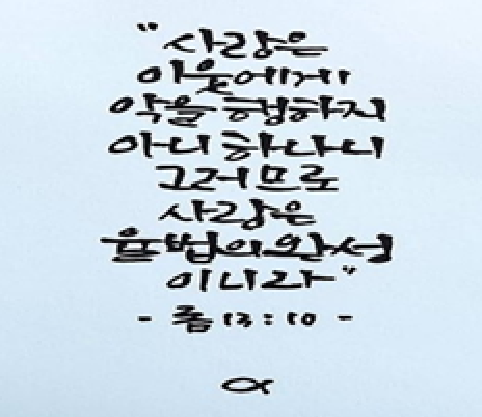 "사랑은
이웃에게
악을 행하지
아니 하나니
그러므로
사랑은
율법의 완성
이니라"
- 롬 13:10 -